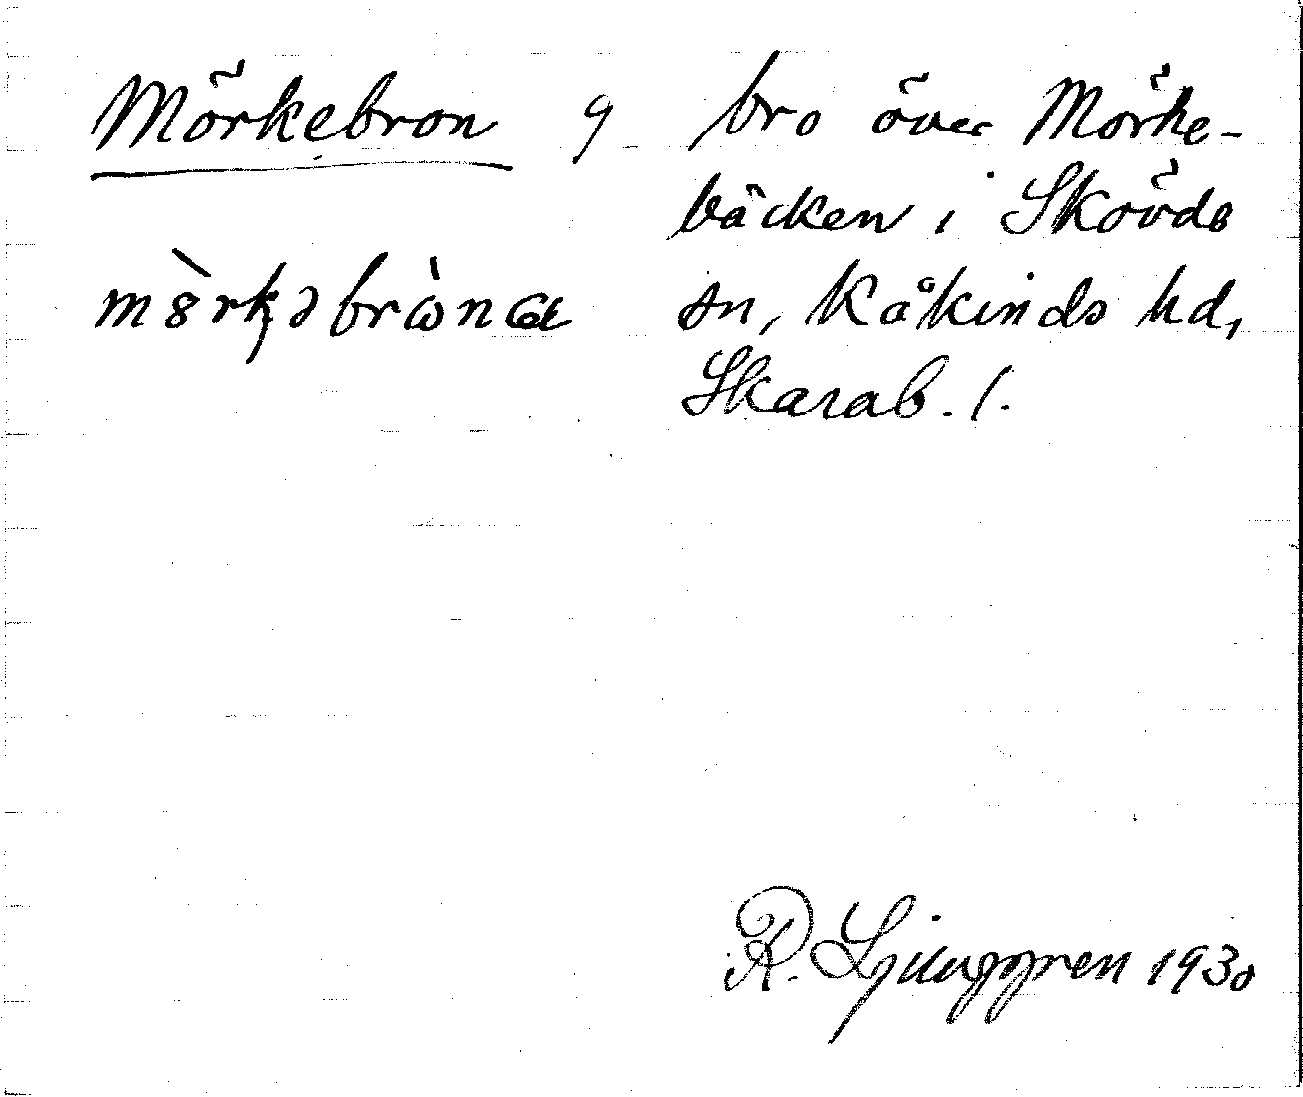 Mörkebron g bro över Mörke-
bäcken i Skövde
sn, Kåkinds hd,
Skarab. l.
R. Ljunggren 1930